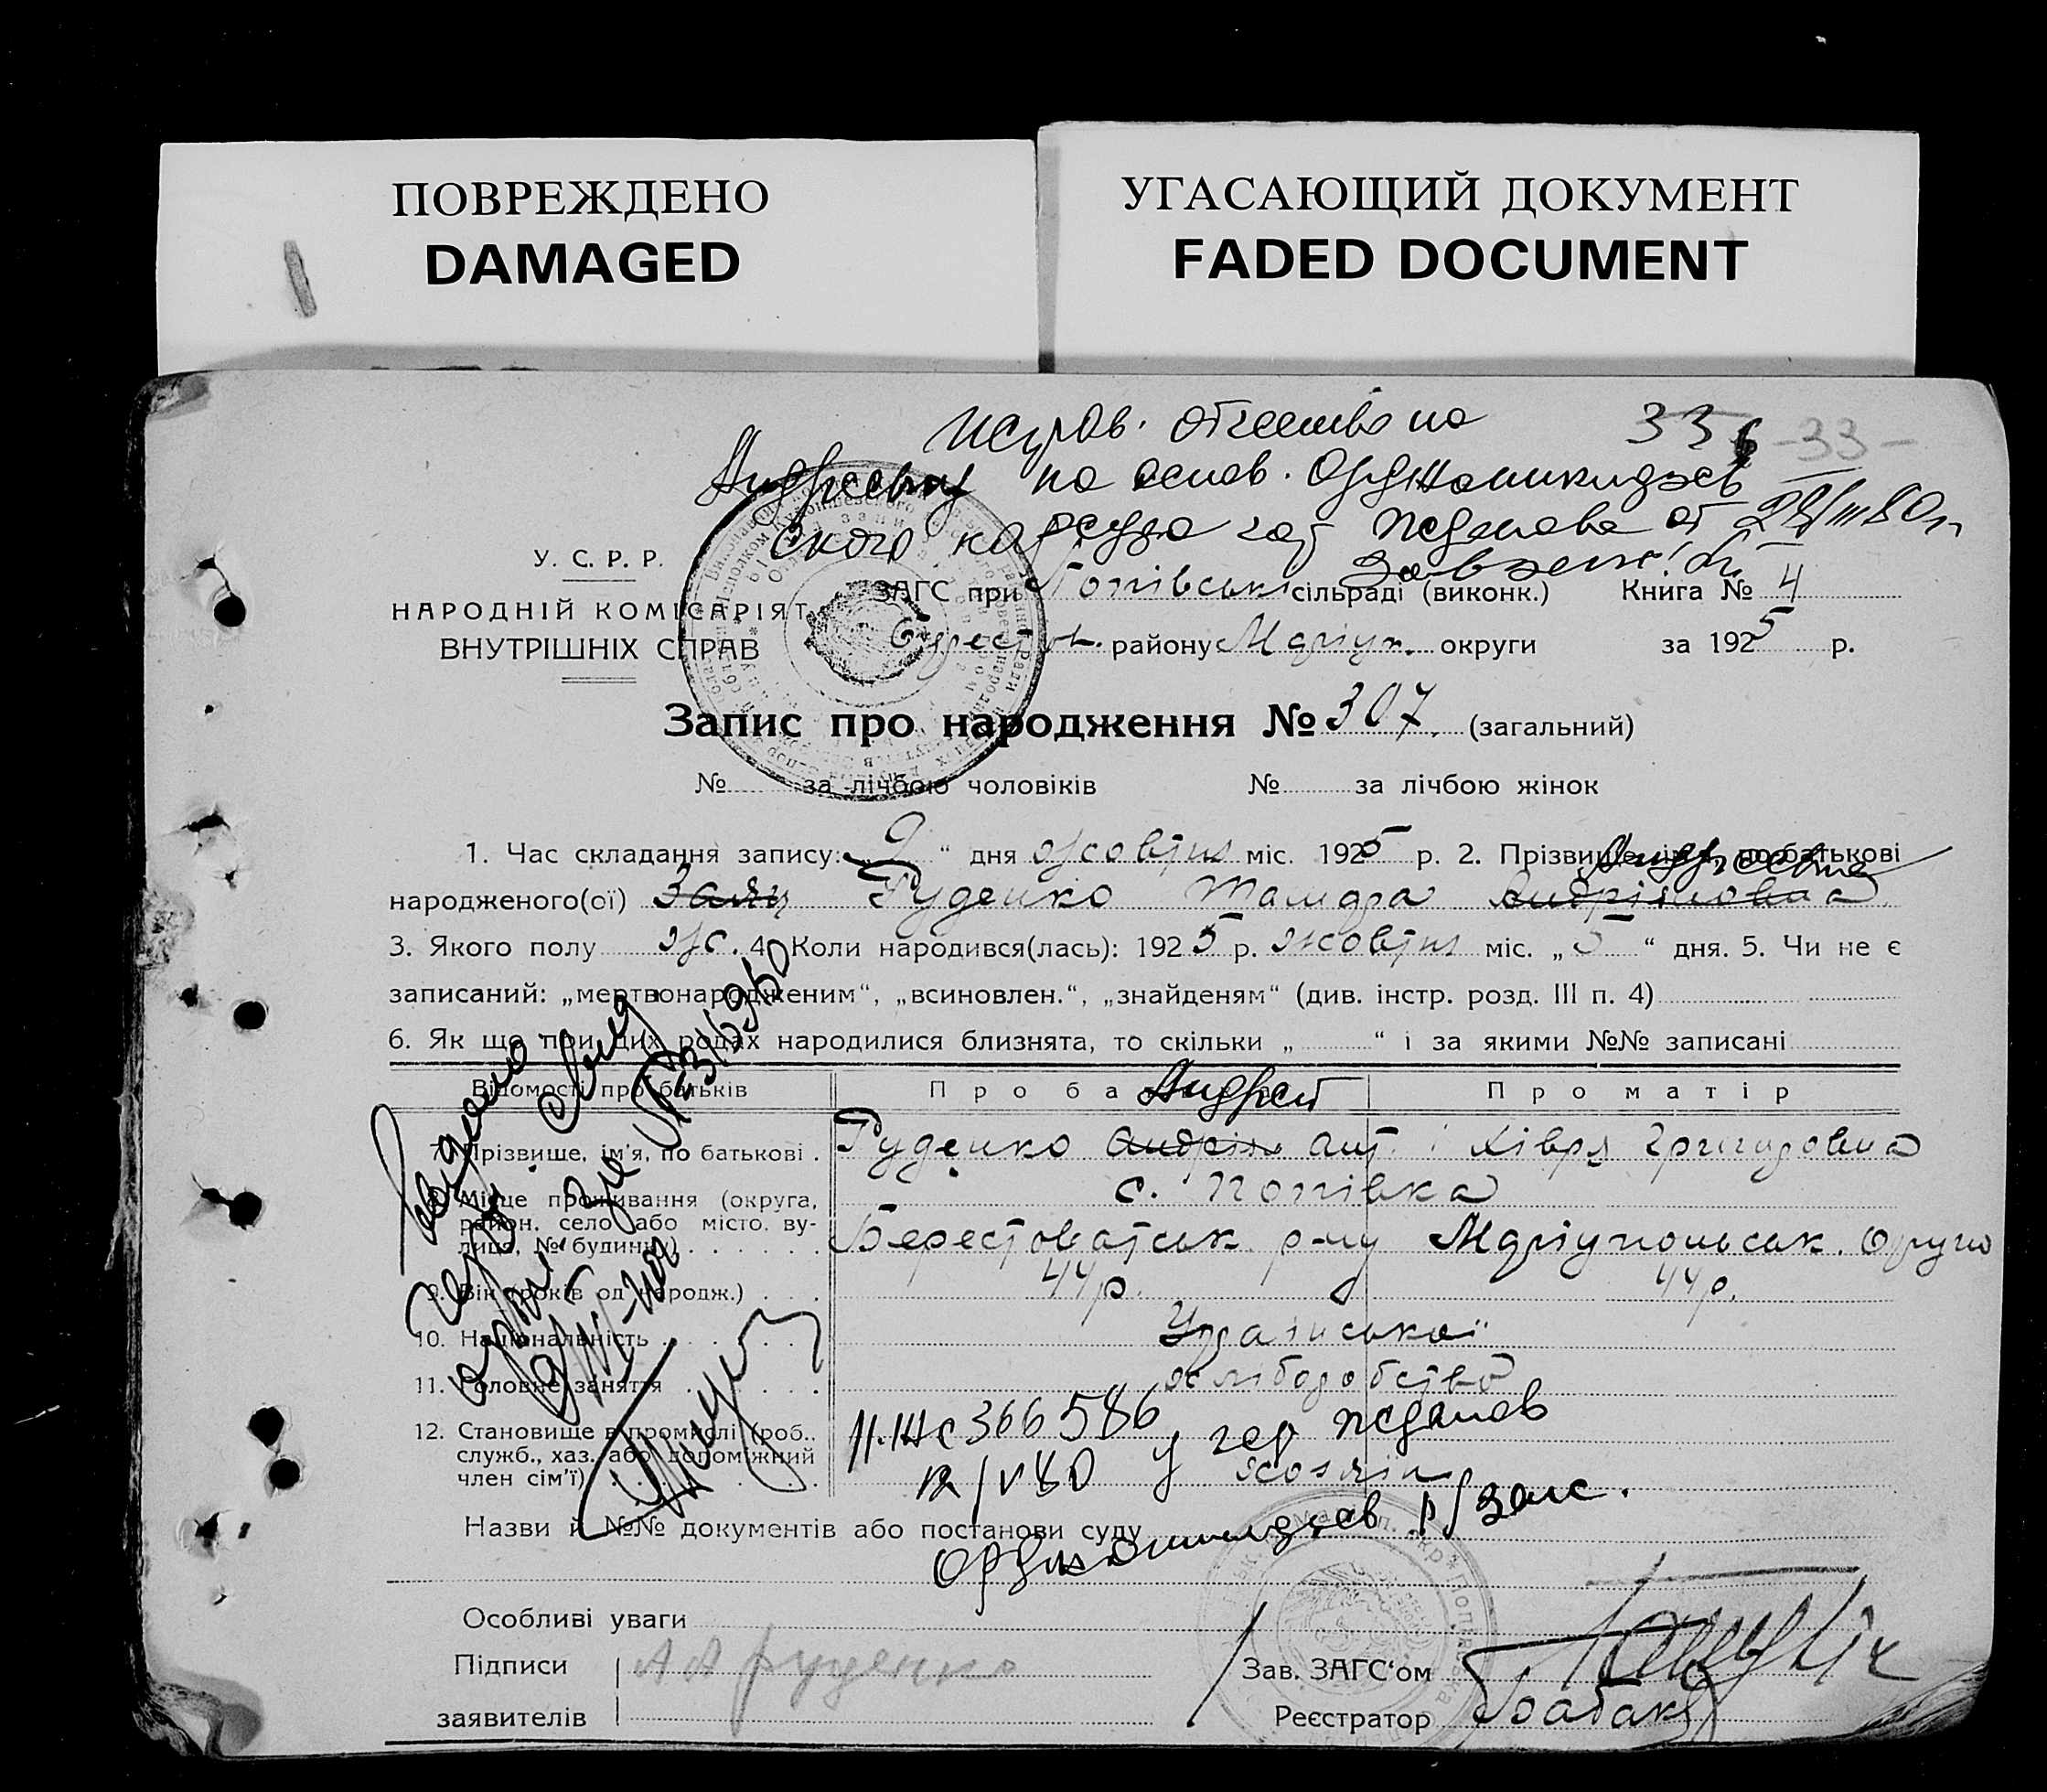 ПОВРЕЖДЕНО
DAMAGED
УГАСАЮЩИЙ ДОКУМЕНТ
FADED DOCUMENT
Исправ. отчество на
33 -33-
Андреевну на основ. Орджоникидзев
ского нарсуда гор Жданова от III 80 г
У. С. Р. Р.
НАРОДНІЙ КОМІСАРІЯТ
ВНУТРІШНІХ СПРАВ
ЗАГС при Попівськ сільраді (виконк.) Книга № 4
Берестов. району Маріуп. округи за 1925 р.
Запис про народження № 307. (загальний)
№ за лічбою чоловіків № за лічбою жінок
1. Час складання запису: „9“ дня жовтня міс. 1925 р. 2. Прізвище, ім'я, по батькові
Андреевна
народженого(ої) Заяц Руденко Тамара Андріяновна
3. Якого полу ж. 4. Коли народився(лась): 1925 р. жовтня міс. „5“ дня. 5. Чи не є
записаний: „мертвонародженим“, „всиновлен.“, „знайденям“ (див. інстр. розд. III п. 4)
6. Як що при цих родах народилися близнята, то скільки „ “ і за якими №№ записані
Відомості про батьків Про батька Про матір
Андрей
7. Прізвище, ім'я, по батькові . Руденко Андріян Ант. Хівря Григоровна
8. Місце проживання (округа, район, село або місто, ву-
лиця, № будинку)
с. Попівка
Берестоватськ р-ну Маріупольськ. округи
9. Вік (років од народж.) 44 р. 44 р.
10. Національність Української
11. Головне заняття хліборобство
12. Становище в промислі (роб.,
служб., хаз. або допоміжний
член сім'ї)
366586 гор Жданов
хазяїн
Назви й №№ документів або постанови суду
Орджоникидзев р/загс.
Особливі уваги
Підписи А А Руденко
заявителів
Зав. ЗАГС'ом
Реєстратор
Выдано